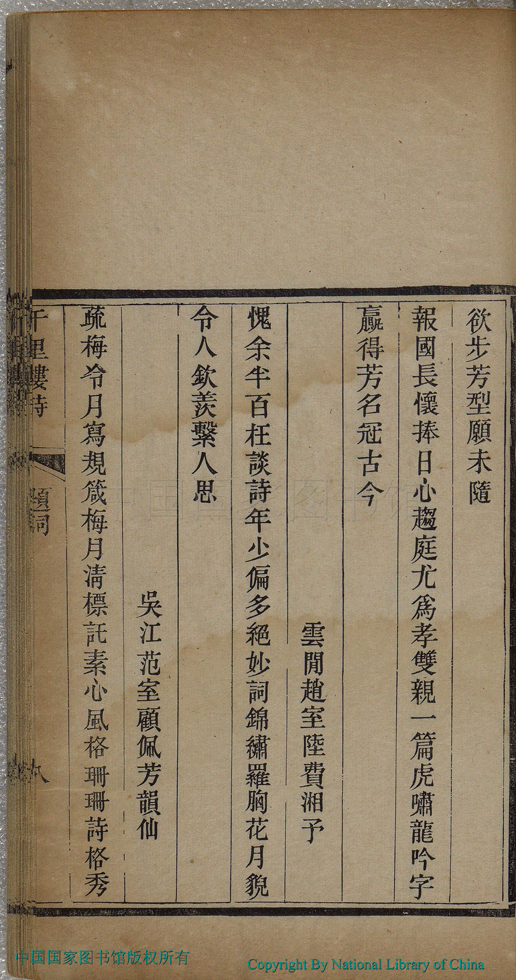 欲步芳型願未隨
報國長懷捧日心趨庭尤爲孝雙親一篇虎嘯龍吟字
贏得芳名冠古今
雲閒趙室陸費湘于
愧余半百枉談詩年少偏多絕妙詞錦繡羅胸花月貌
令人欽羨繫人思
吳江范室顧佩芳韻仙
疏梅冷月寫規箴梅月淸標託素心風格珊珊詩格秀
千里樓詩
題詞
八
中国国家图书馆版权所有
Copyright By National Library of China